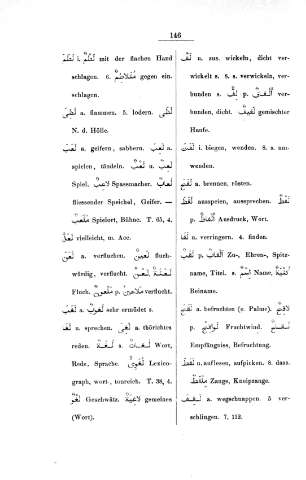 146
لَطَمَ i. لَطْم mit der flachen Hand
schlagen. 6. مُتَلَاطِم gegen ein.
schlagen.
لَظَى a. flammen. 5. lodern. لَظًى
N. d. Hölle.
لَعَبَ a. geifern, sabbern. لَعِبَ a.
spielen, tändeln. لَعِبٌ s.
Spiel. لَاعِبٌ Spassmacher. لُعَابٌ
fliessender Speichel, Geifer. —
مَلْعَبٌ Spielort, Bühne. T. 65, 4.
لَعَلَّ vielleicht, m. Acc.
لَعَنَ a. verfluchen. لَعِينٌ fluch-
würdig, verflucht. لَعْنَةٌ
Fluch. مَلْعُونٌ p. مَلَاعِينُ verflucht.
لَغَبَ a. لُغُوبٌ sehr ermüdet s.
لَغَا u. sprechen. لَغِيَ a. thörichtes
reden. لُغَةٌ s. لُغَاتٌ Wort,
Rede, Sprache. لُغَوِيٌّ Lexico-
graph, wort-, tonreich. T. 38, 4.
لَغْوٌ Geschwätz. لَاغِيَةٌ gemeines
(Wort).
لَفَّ u. zus. wickeln, dicht ver-
wickelt s. 8. s. verwickeln, ver-
bunden s. لِفٌّ p. أَلْفَافٌ ver-
bunden, dicht. لَفِيفٌ gemischter
Haufe.
لَفَتَ i. biegen, wenden. 8. s. um-
wenden.
لَفَحَ a. brennen, rösten.
لَفَظَ ausspeien, aussprechen. لَفْظٌ
p. أَلْفَاظٌ Ausdruck, Wort.
لَفَا u. verringern. 4. finden.
لَقَبٌ p. أَلْقَابٌ Zu-, Ehren-, Spitz-
name, Titel. s. اِسْمٌ Name, كُنْيَةٌ
Beiname.
لَقَحَ a. befruchten (e. Palme). لَاقِحٌ
p. لَوَاقِحُ Fruchtwind.
Empfängniss, Befruchtung.
لَقَطَ u. auflesen, aufpicken. 8. dass.
مِلْقَطٌ Zange, Kneipzange.
لَقِفَ a. wegschnappen. 5 ver-
schlingen. 7, 112.